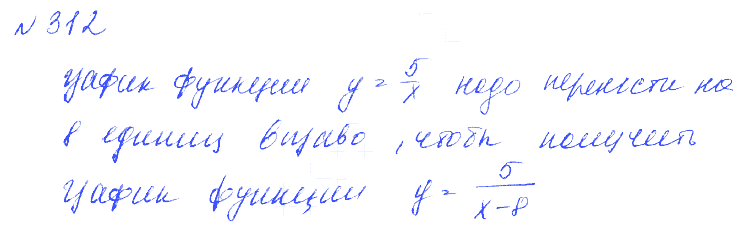 № 312
График функции y = 5/x надо перенести на
8 единиц вправо, чтобы получить
График функции y = 5/(x-8)